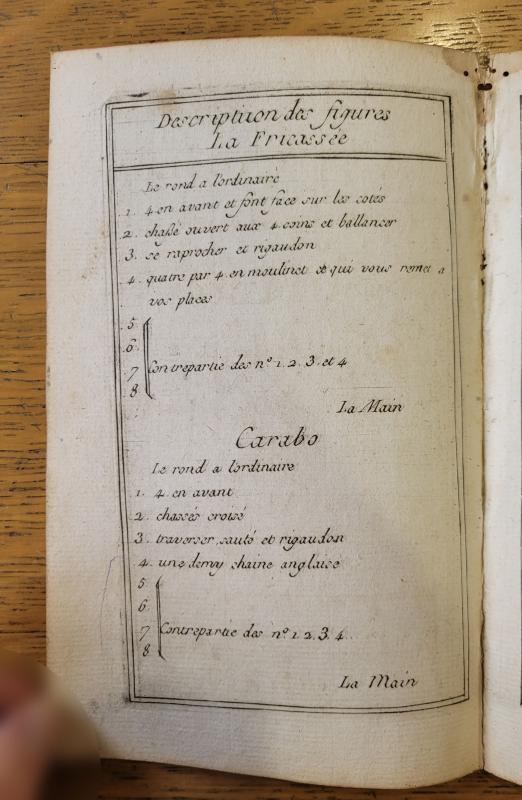 Description des figures
La Fricassée
Le rond a l'ordinaire
1. 4 en avant et font face sur les cotés
2. chassé ouvert aux 4 coins et ballancer
3. se raprocher et rigaudon
4. quatre par 4 en moulinet et qui vous remet a
vos places
5
6
7 Contrepartie des n° 1. 2. 3. et 4
8
La Main
Carabo
Le rond a l'ordinaire
1. 4 en avant
2. chassés croisé
3. traverser, sauté et rigaudon
4. une demy chaine anglaise
5
6
7 Contrepartie des n° 1. 2. 3. 4.
8
La Main